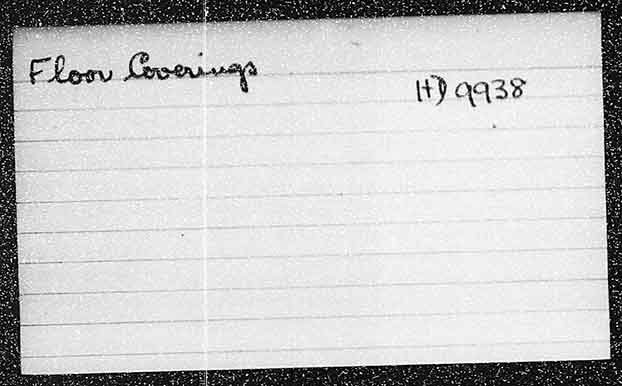 Floor Coverings
HD 9938